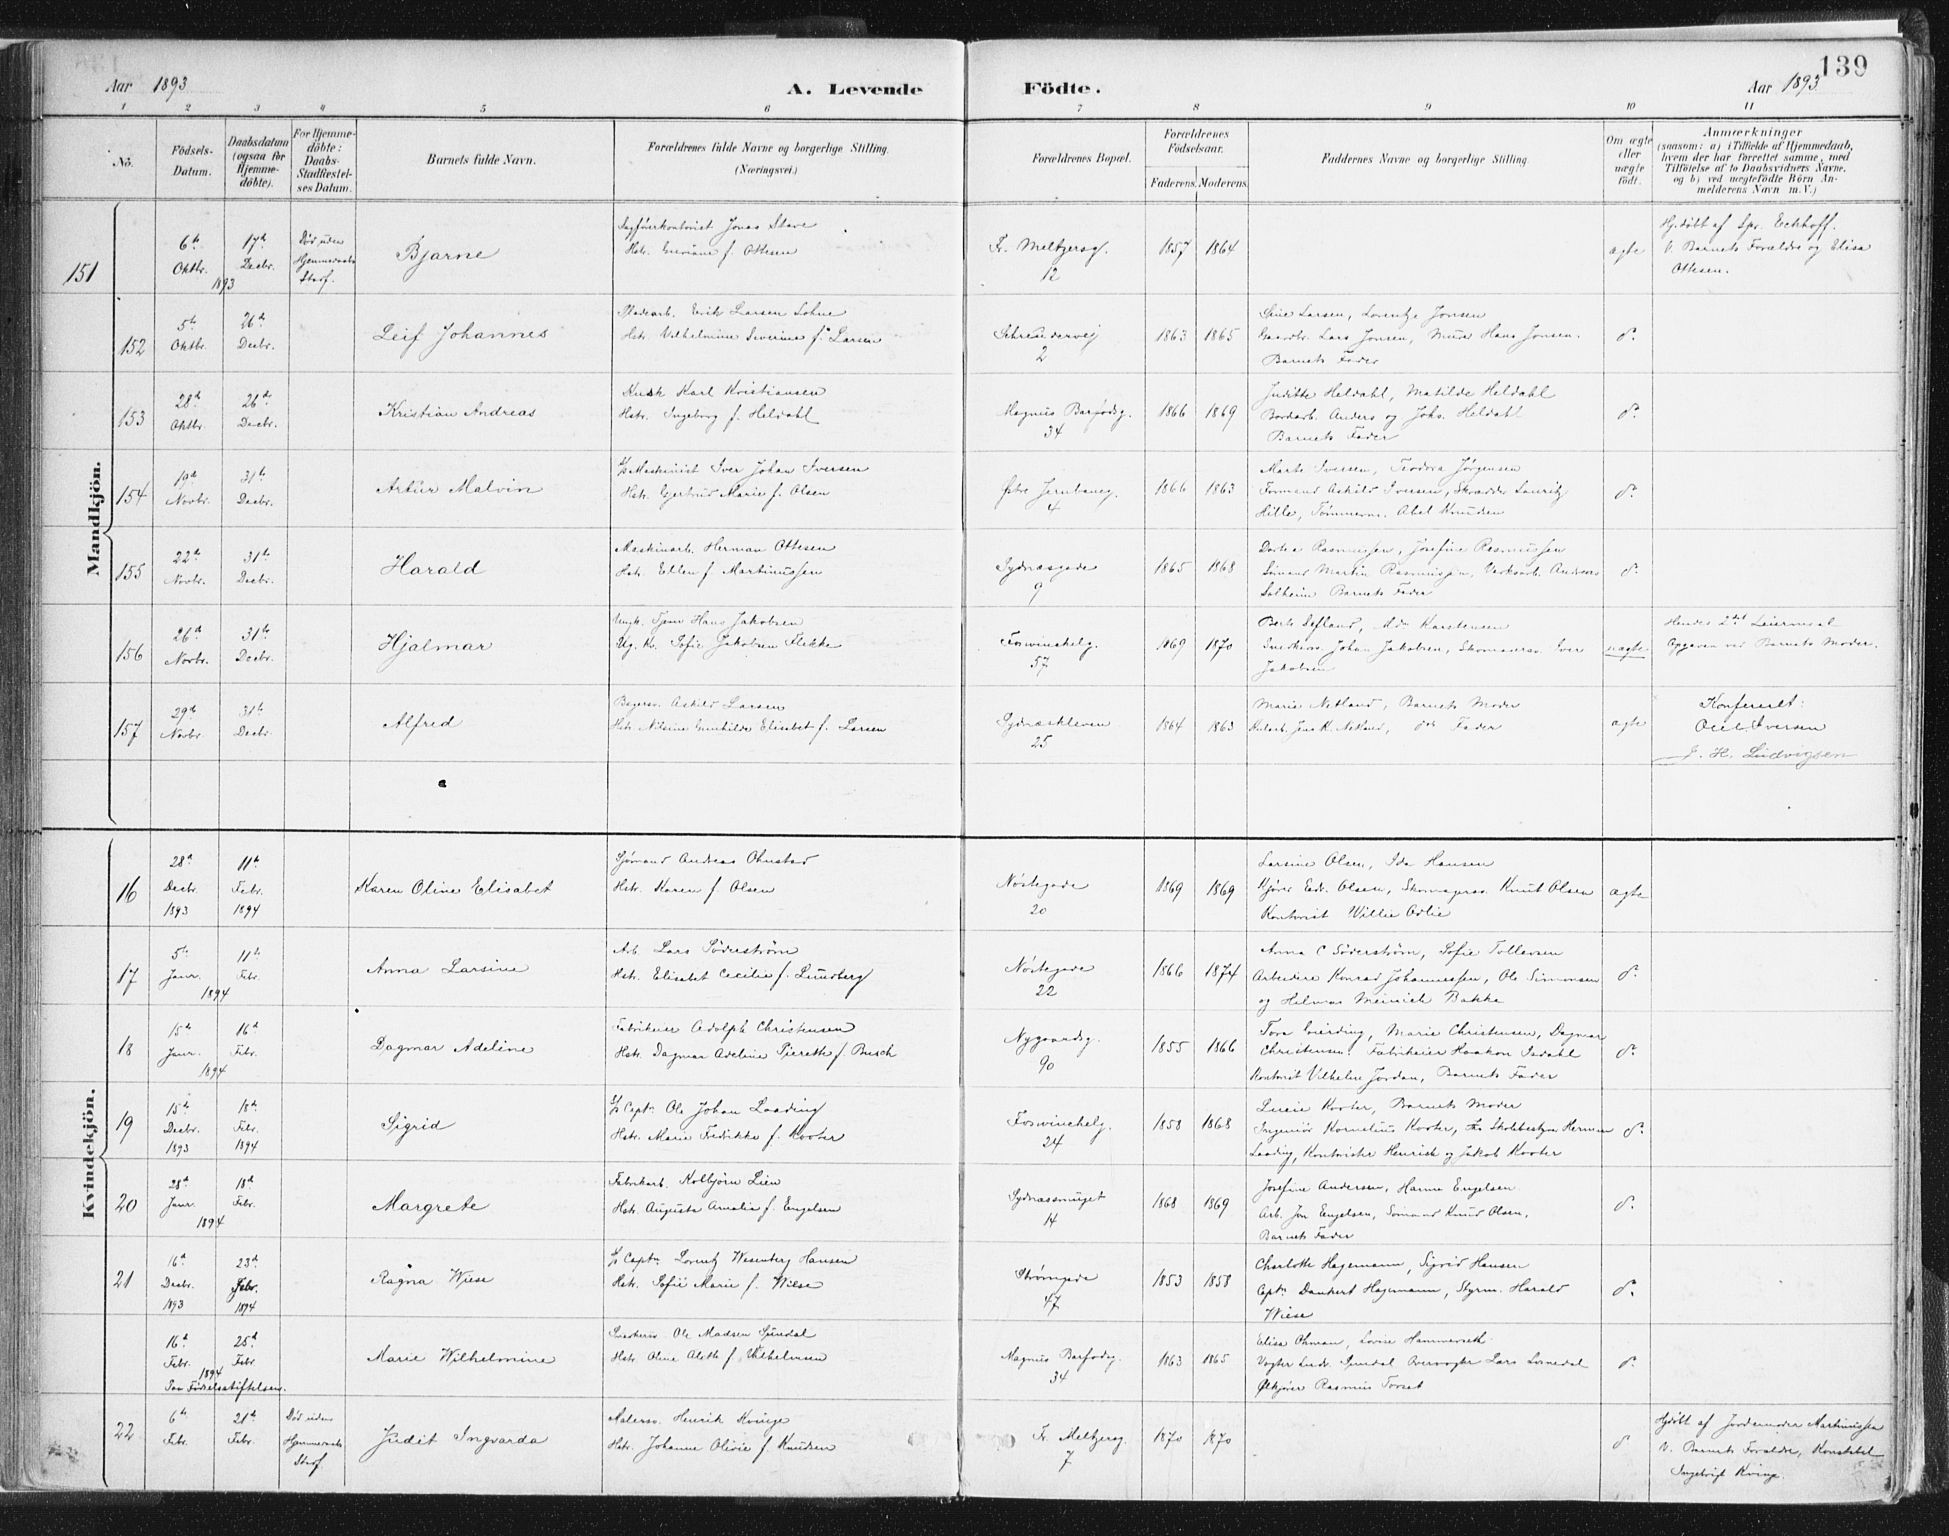 139
Aar 1893
A. Levende Födte.
Aar 1893
1 2 3 4 5 6 7 8 9 10 11
No.
Födsels-Datum.
Daabsdatum (ogsaa for Hjemme-döbte).
For Hjemme-döbte: Daabs-Stadfæstel-ses Datum.
Barnets fulde Navn.
Forældrenes fulde Navne og borgerlige Stilling.
(Næringsvei.)
Forældrenes Bopæl.
Forældrenes Födselsaar.
Faderens. Moderens.
Faddernes Navne og borgerlige Stilling.
Om ægte eller uægte födt.
Anmærkninger
(saasom: a) i Tilfælde af Hjemmedaab,
hvem der har forrettet samme, med
Tilföielse af to Daabsvidners Navne,
og b) ved uægtefödte Börn An-
melderens Navn m. V.)
Mandkjön.
151
6te Oktbr. 1893
17de Decbr.
Död uden Hjemmedaabs Stadf.
Bjarne
Sagförerkontorist Jonas Stave
Hst. f. Ottesen
Fr. Meltzersg. 12
1857 1864
ægte
Hj.döbt af Spr. Eckhoff.
V. Barnets Forældre og Elisa
Ottesen.
152
5te Oktbr.
26de Decbr.
Leif Johannes
Pladsarb. Erik Larsen Lohne
Hst. Vilhelmine Severine f. Larsen
Schreudervej 2
1863 1865
Sine Larsen, Lorentze Jonsen
Gaardbr. Lars Jonsen, Murer Hans Jonsen.
Barnets Fader
do.
153
28de Oktbr.
26de Decbr.
Kristian Andreas
Kusk Karl Kristiansen
Hst. Ingeborg f. Heldahl
Magnus Barfodsg. 34
1866 1869
Juditte Heldahl, Matilde Heldahl
Bordarb. Anders og Johs. Heldahl
Barnets Fader
do.
154
19de Novbr.
31te Decbr.
Artur Malvin
S/S Maskinist Iver Johan Iversen
Hst. Gertrud Marie f. Olsen
Østre Jernbaneg. 4
1866 1863
Marte Iversen, Teodora Jørgensen
Formand Askild Iversen, Skrædder Lauritz
Hille, Tømmerm. Abel Knudsen
do.
155
22de Novbr.
31te Decbr.
Harald
Maskinarb. Herman Ottesen
Hst. Ellen f. Martinussen
Sydnæsgade 9
1865 1868
Dortea Rasmussen, Josefine Rasmussen
Sömand Martin Rasmussen, Verksarb. Andreas
Solheim Barnets Fader
do.
156
26de Novbr.
31te Decbr.
Hjalmar
Ungk. Tjener Hans Jakobsen
Ug. Kv. Sofie Jakobsen Flekke
Foswinckelg. 57
1869 1870
Berte Lofland, Ada Karstensen
Snedkersv. Johan Jakobsen, Skomagersv. Iver
Jakobsen
uægte
Hendes 2det Leiermaal
Opgaven ved Barnets Moder.
157
29de Novbr.
31te Decbr.
Alfred
Bagersv. Askild Larsen
Hst. Nilsine Gunhilde Elisabet f. Larsen
Sydneskleven 25
1864 1863
Marie Netland, Barnets Moder
Jens K. Netland, do Fader
ægte
Konfereret:
Iversen
J. H. Ludvigsen
Kvindekjön.
16
28de Decbr. 1893
11te Febr. 1894
Karen Oline Elisabet
Sjømand Andreas Ohnstad
Hst. Karen f. Olsen
Nöstegade 20
1869 1869
Larsine Olsen, Ida Hansen
Kjører Ed. Olsen, Skomagersv. Knut Olsen
Kontorist Willie Odlie
ægte
17
5te Janr. 1894
11te Febr.
Anna Larsine
Arb. Lars Söderström
Hst. Elisabet Cecilie f. Lundberg
Nöstegade 22
1866 1874
Anna C Söderström, Sofie Tollevsen
Arbeidere Konrad Johannessen, Ole Simonsen
og Helmar Meinich Bakke
do.
18
15de Janr. 1894
16de Febr.
Dagmar Adeline
Fabrikeier Adolph Christensen
Hst. Dagmar Adeline Pierette f. Busch
Nygaardsg. 90
1855 1866
Tora, Marie Christensen, Dagmar
Christensen. Fabrikeier Haakon Isdahl
Kontorist Vilhelm Jordan, Barnets Fader
do.
19
15de Decbr. 1893
18de Febr. 1894
Sigrid
S/S Captn Ole Johan Laading
Hst. Marie Fredrikke f. Kooter
Foswinckelg. 24
1858 1868
Lucie Kooter, Barnets Moder
Ingeniör Kornelius Kooter, Skolebestyrer Herman
Laading, Kontorister Henrich og Jakob Kooter
do.
20
28de Janr. 1894
18de Febr.
Margrete
Fabrikarb. Kolbjörn Lien
Hst. Augusta Amalia f. Engelsen
Sydnæssmuget 14
1868 1869
Josefine Andersen, Hanna Engelsen
Arb. Jon Engelsen, Sömand Knud Olsen,
Barnets Fader
do.
21
16de Decbr. 1893
23de Febr. 1894
Ragna Wiese
S/S Captn Lorentz Wesenberg Hansen
Hst. Sofie Marie f. Wiese
Strömgade 47
1853 1858
Charlotte Hagemann, Sigrid Hansen
Captn Dankert Hagemann, Styrm. Harald
Wiese
do.
16de Febr. 1894
25de Febr
Paa Födselsstiftelsen.
Marie Wilhelmine
Snedkersv. Ole Madsen Spindal
Hst. Oline Alette f. Vilhelmsen
Magnus Barfodsg. 34
1863 1865
Elisa Ohman, Lovise Hammerseth
Vogter Ludv. Spindal Overvogter Lars
Ølkjører Rasmus Torset
do.
22
6te Febr.
21de Febr.
Död uden Hjemmedaabs Stadf
Judit Ingvarda
Malersv. Henrik Kvinge
Hst. Johanne Olivie f. Knudsen
Fr. Meltzersg. 7
1870 1870
do
Hjdöbt af Jordemoder Martinussen
V. Barnets Forældre, Konstabel
Ingebrigt Kvinge.